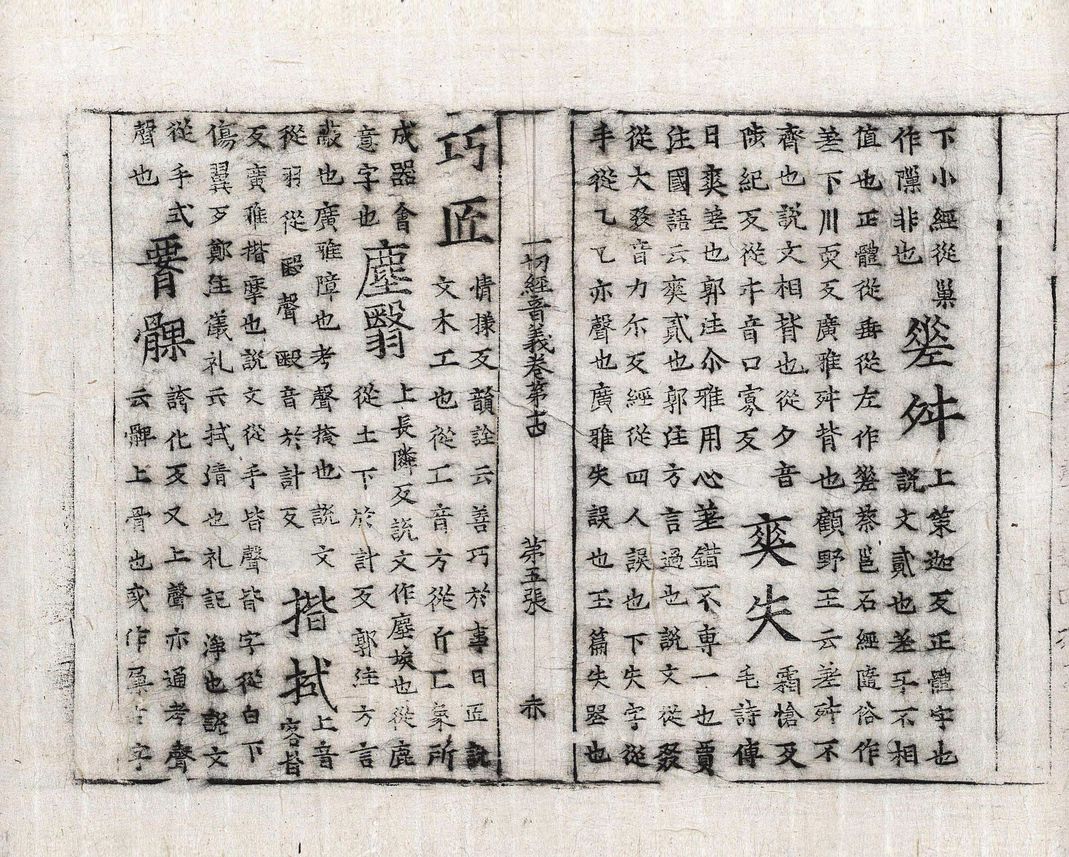 下小經從巢
作樔非也
差舛
上策迦反正體字也
說文貳也差互不相
值也正體從垂從左作𢀩蔡邕石經隨俗作
差下川耎反廣雅舛背也顧野王云差舛不
齊也說文相背也從夕音
陟紀反從㐄音口寡反
爽失
霜愴反
毛詩傳
日爽差也郭注尒雅用心差錯不専一也賈
注國語云爽貳也郭注方言過也說文從㸚
從大㸚音力尒反經從四人誤也下失字從
手從乙乙亦聲也廣雅失誤也玉篇失也
一切經音義卷第古 第五張 赤
巧匠
情㨾反韻詮云善巧於事曰匠說
文木工也從匚音方從斤匚象所
成器會
意字也
塵翳
上長隣反說文作塵埃也從鹿
從土下於計反郭注方言
蔽也廣雅障也考聲掩也說文
從羽從殹聲殹音於計反
揩拭
上音
客皆
反廣雅揩摩也說文從手皆聲皆字從白下
傷翼反鄭注儀礼云拭清也礼記淨也說文
從手式
聲也
髁
誇化反又上聲亦通考聲
云髀上骨也或作字